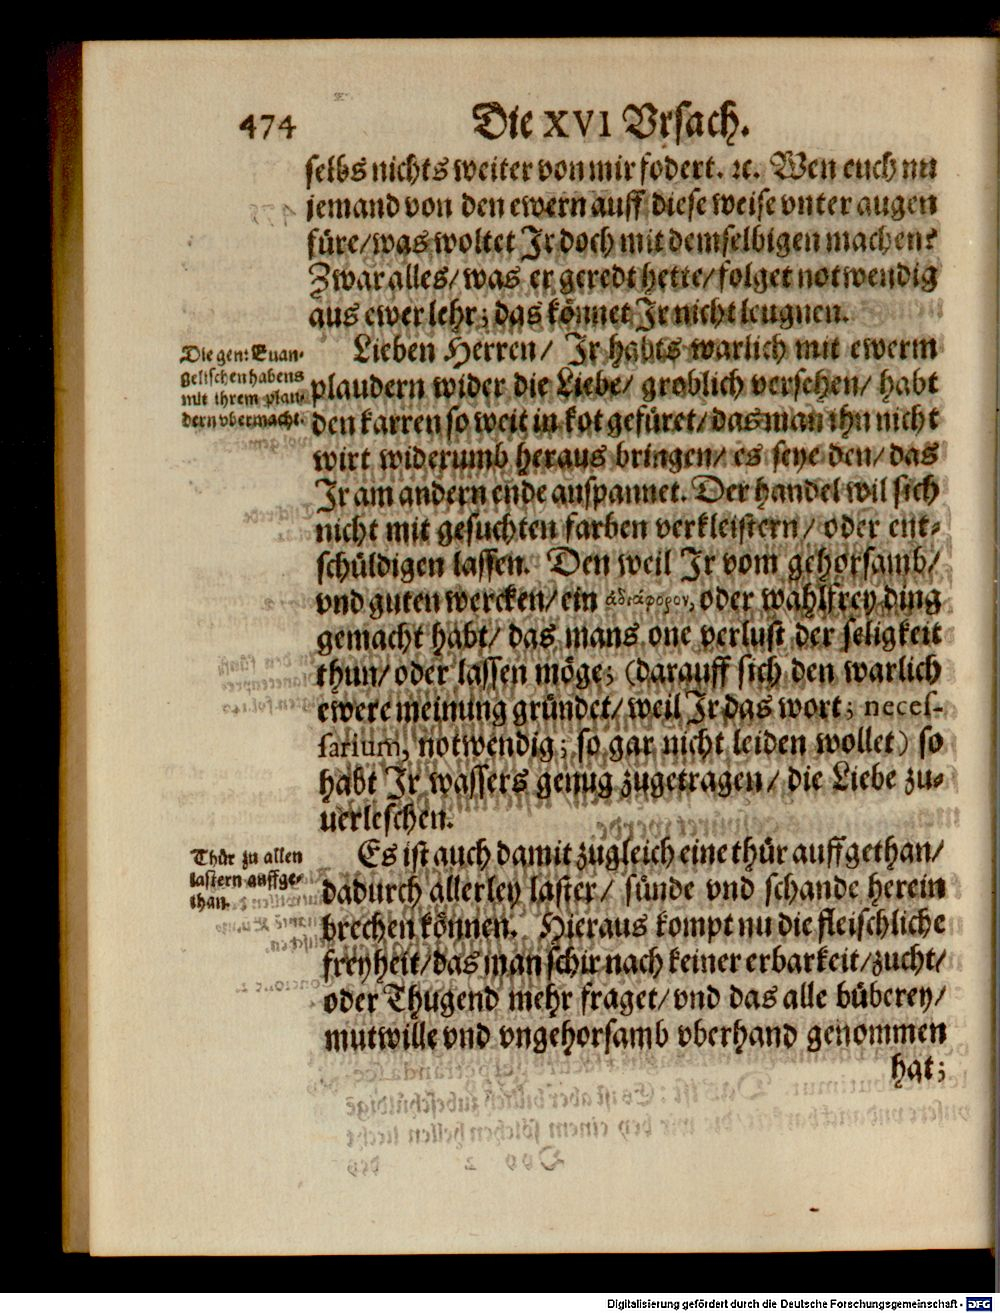 474
Die XVI Vrsach.
selbs nichts weiter von mir fodert. ꝛc. Wen euch nu
jemand von den ewern auff diese weise vnter augen
füre/ was woltet Jr doch mit demselbigen machen?
Zwar alles/ was er geredt hette/ folget notwendig
aus ewer lehr; das könnet Jr nicht leugnen.
Die gen: Euan-
gelischen habens
mit ihrem plau-
dern vbermacht.
Lieben Herren/ Jr habts warlich mit ewerm
plaudern wider die Liebe/ groblich versehen/ habt
den karren so weit in kot gefüret/ das man ihn nicht
wirt widerumb heraus bringen/ es seye den/ das
Jr am andern ende anspannet. Der handel wil sich
nicht mit gesuchten farben verkleistern/ oder ent-
schüldigen lassen. Den weil Jr vom gehorsamb/
vnd guten wercken/ ein ἀδιάφορον, oder wahlfrey ding
gemacht habt/ das mans one verlust der seligkeit
thun/ oder lassen möge; (darauff sich den warlich
ewere meinung gründet/ weil Jr das wort; neces-
sarium, notwendig; so gar nicht leiden wollet) so
habt Jr wassers genug zugetragen/ die Liebe zu-
uerleschen.
Thür zu allen
lastern auffge-
than.
Es ist auch damit zugleich eine thür auffgethan/
dadurch allerley laster/ sünde vnd schande herein
brechen können. Hieraus kompt nu die fleischliche
freyheit/ das man schir nach keiner erbarkeit/ zucht/
oder Thugend mehr fraget/ vnd das alle büberey/
mutwille vnd vngehorsamb vberhand genommen
hat;
Digitalisierung gefördert durch die Deutsche Forschungsgemeinschaft - DFG